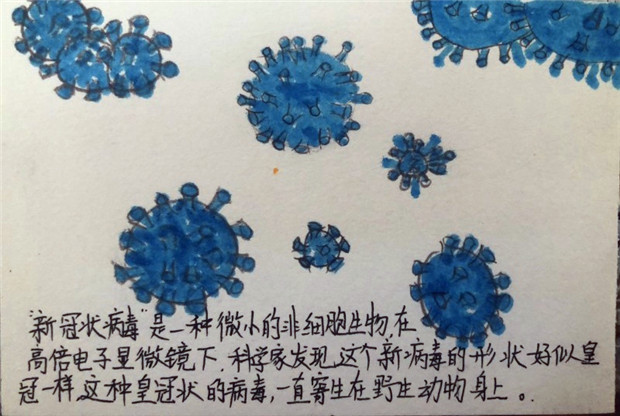 "新冠状病毒"是一种微小的非细胞生物,在
高倍电子显微镜下,科学家发现,这个新病毒的形状好似皇
冠一样,这种皇冠状的病毒,一直寄生在野生动物身上。